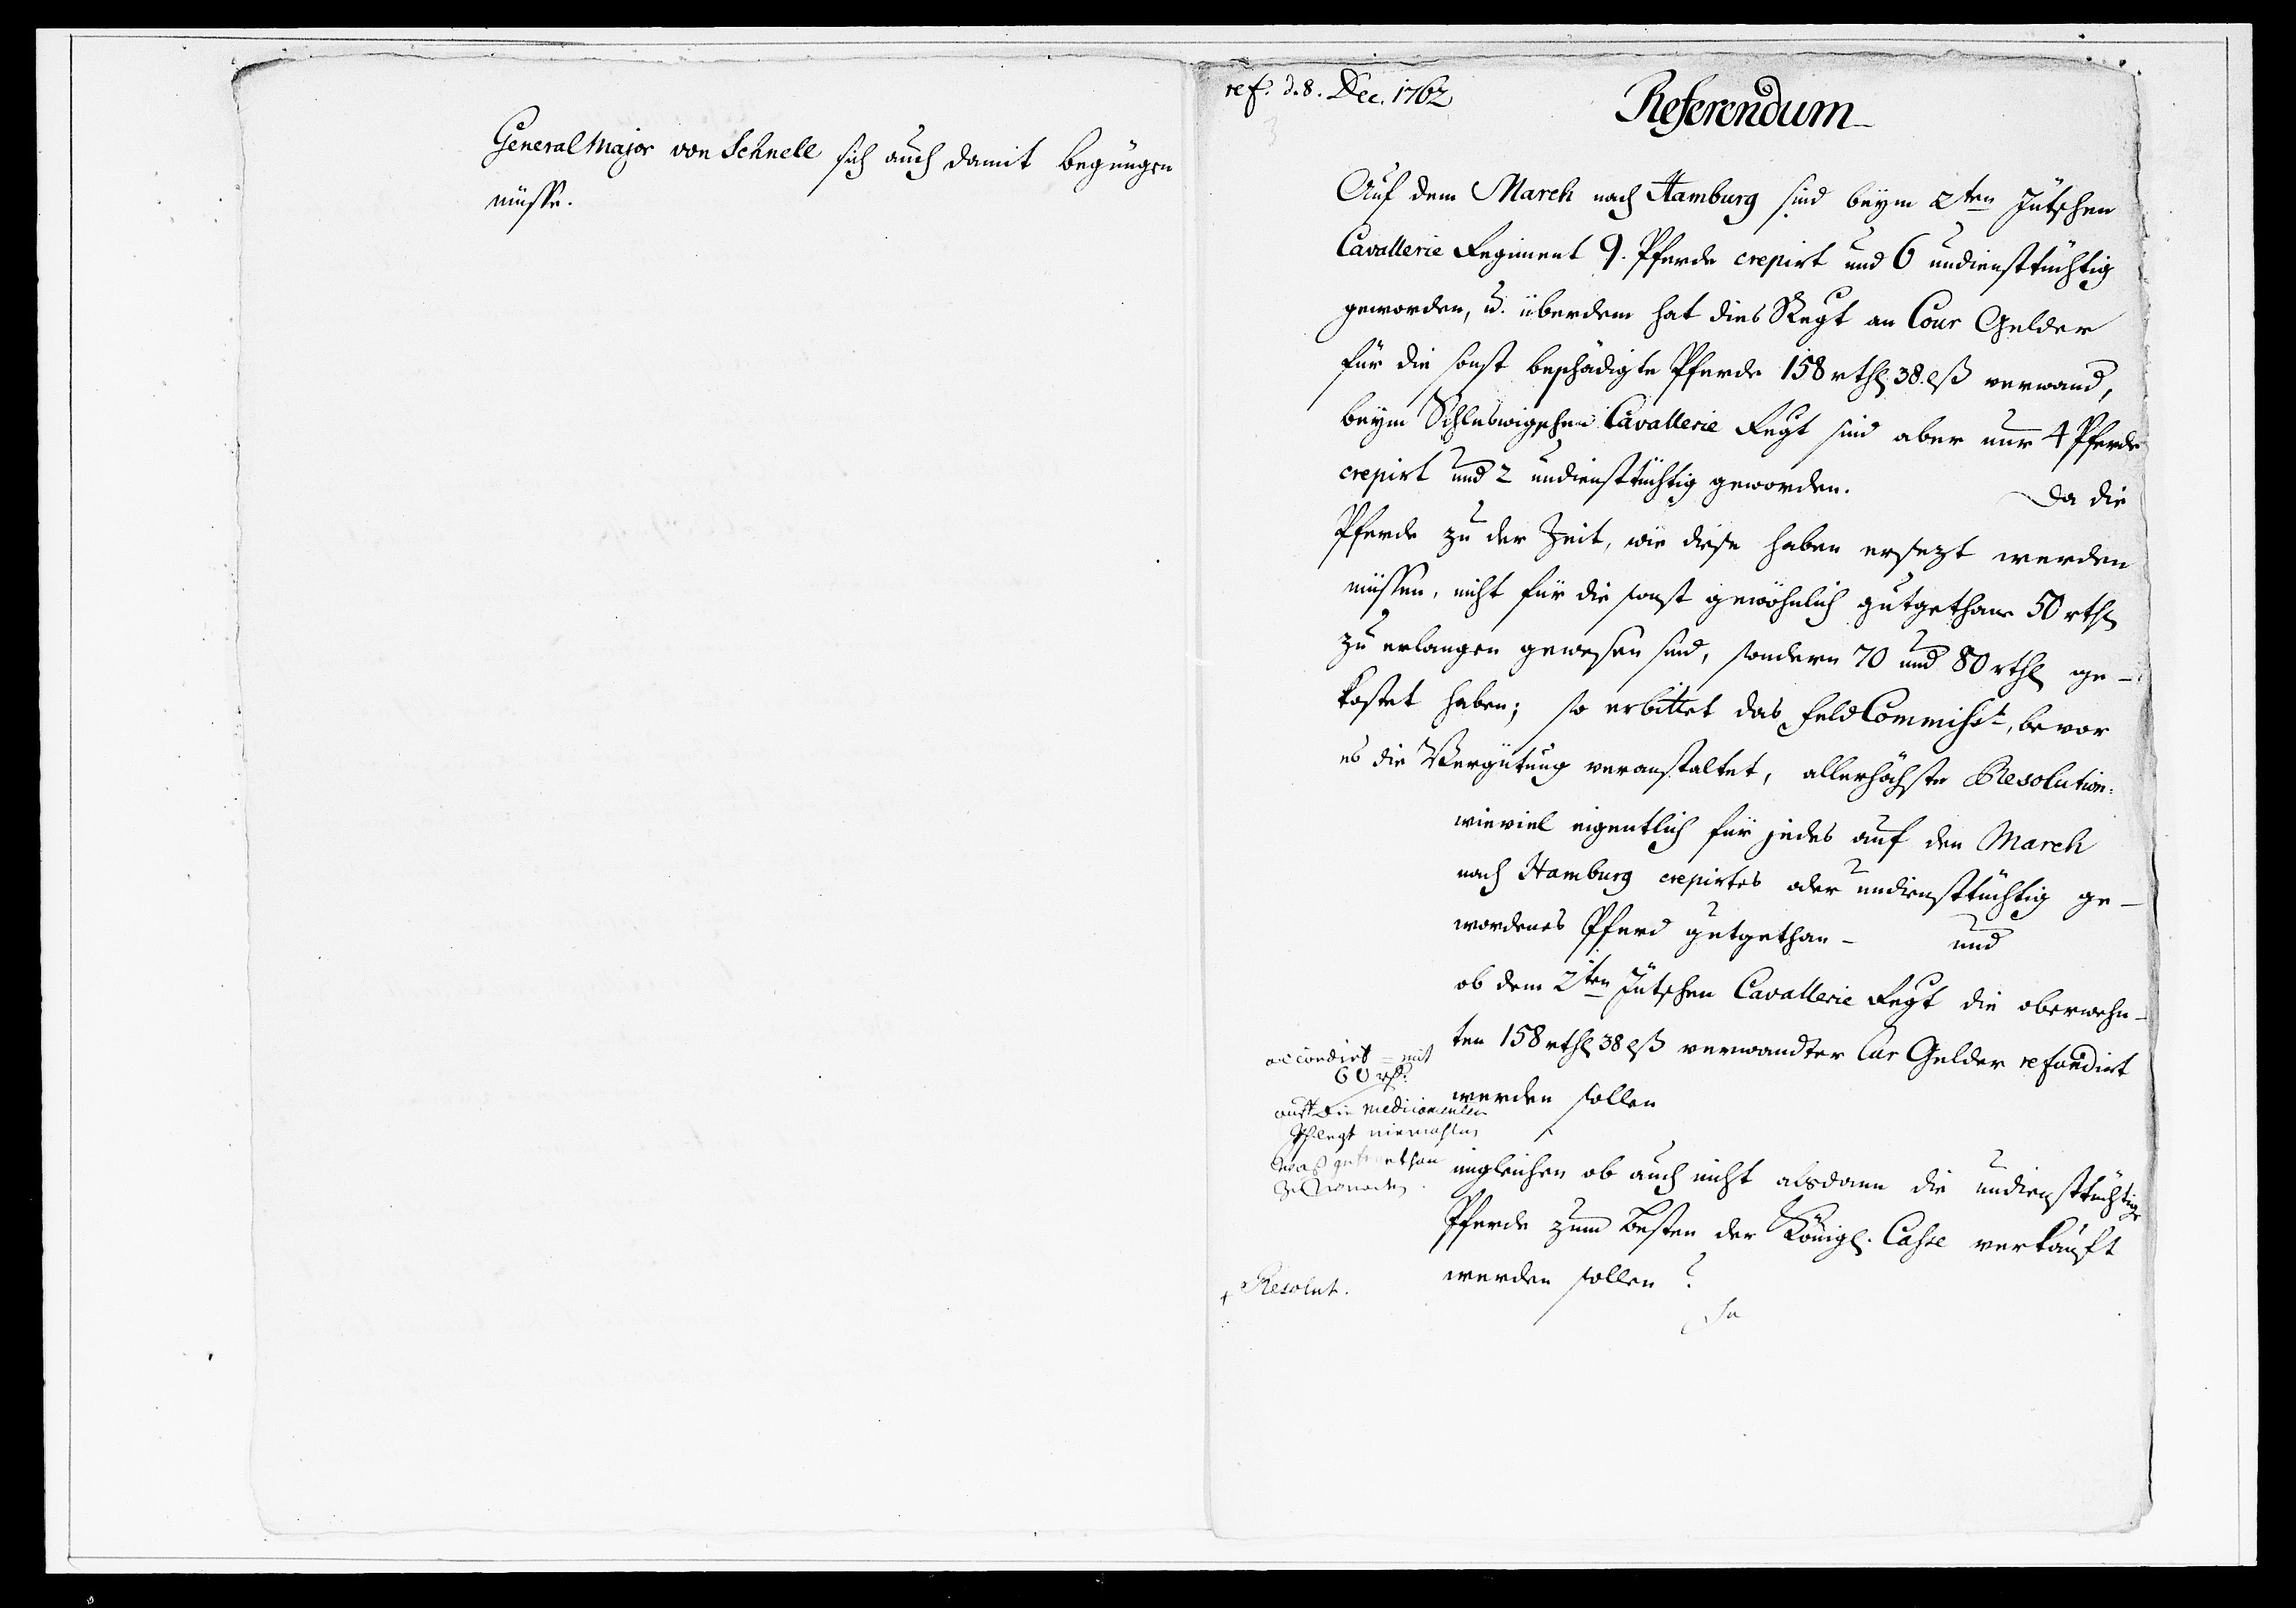 General Major von Schnell sich auch damit begnügen
müsse.
ref. d. 8. Dec. 1762
3
Referendum
Auf dem March nach Hamburg sind beym 2ten Jütschen
Cavallerie Regiment 9. Pferde crepirt und 6 undiensttüchtig
geworden, u. überdem hat dies Regt an Cour Gelder
für die sonst beschädigte Pferde 158 rthl 38. lß verwand,
beym Schleswigschen Cavallerie Regt sind aber nur 4 Pferde
crepirt und 2 undiensttüchtig geworden. Da die
Pferde zu der Zeit, wie diese haben ersezt werden
müssen, nicht für die sonst gewöhnlich gutgethane 50 rthl
zu erlangen gewesen sind, sondern 70 und 80 rthl ge-
kostet haben; so erbittet das Feld Commisst, bevor
es die Vergütung veranstaltet, allerhöchste Resolution:
wieviel eigentlich für jedes auf den March
nach Hamburg crepirtes oder undiensttüchtig ge-
wordenes Pferd gutgethan - und
ob dem 2ten Jütschen Cavallerie Regt die oberwehn-
ten 158 rthl 38 lß verwandter Cur Gelder refundirt
werden sollen
imgleichen ob auch nicht alsdann die undiensttüchtige
Pferde zum Besten der Königl. Casse verkauft
werden sollen?
Ja
accordirt = mit
60 rthl
die Medicamenten
pflegt niemahlen
gutgethan
zu werden.
Resolut.